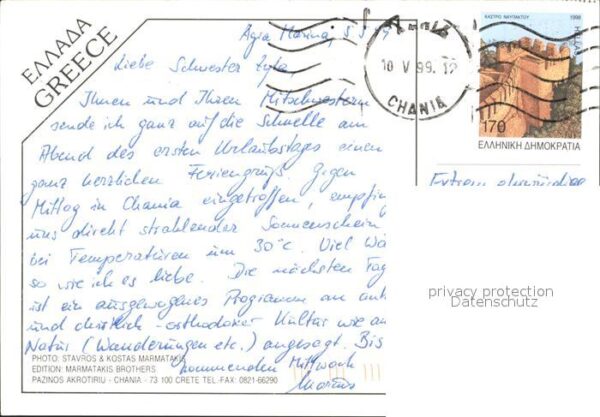 ΕΛΛΑΔΑ
GREECE
Agia Marina, 5.5.
Liebe Schwester
Ihnen und Ihren Mitschwestern
sende ich ganz auf die Schnelle am
Abend des ersten Urlaubstages einen
ganz herzlichen Feriengruß. Gegen
Mittag in Chania eingetroffen, empfing
uns direkt strahlender Sonnenschein
bei Temperaturen um 30°C. Viel Wä
so wie ich es liebe. Die nächsten Tag
ist ein ausgewogenes Programm an anti
und christlich-orthodoxer Kultur wie an
Natur (Wanderungen etc.) angesagt. Bis
kommenden Mittwoch
Markus
PHOTO: STAVROS & KOSTAS MARMATAKIS
EDITION: MARMATAKIS BROTHERS
PAZINOS AKROTIRIU - CHANIA - 73 100 CRETE TEL-FAX: 0821-66290
10 V 99. 12
CHANIA
ΚΑΣΤΡΟ ΝΑΥΠΑΚΤΟΥ
1998
HELLAS
170
ΕΛΛΗΝΙΚΗ ΔΗΜΟΚΡΑΤΙΑ
privacy protection
Datenschutz